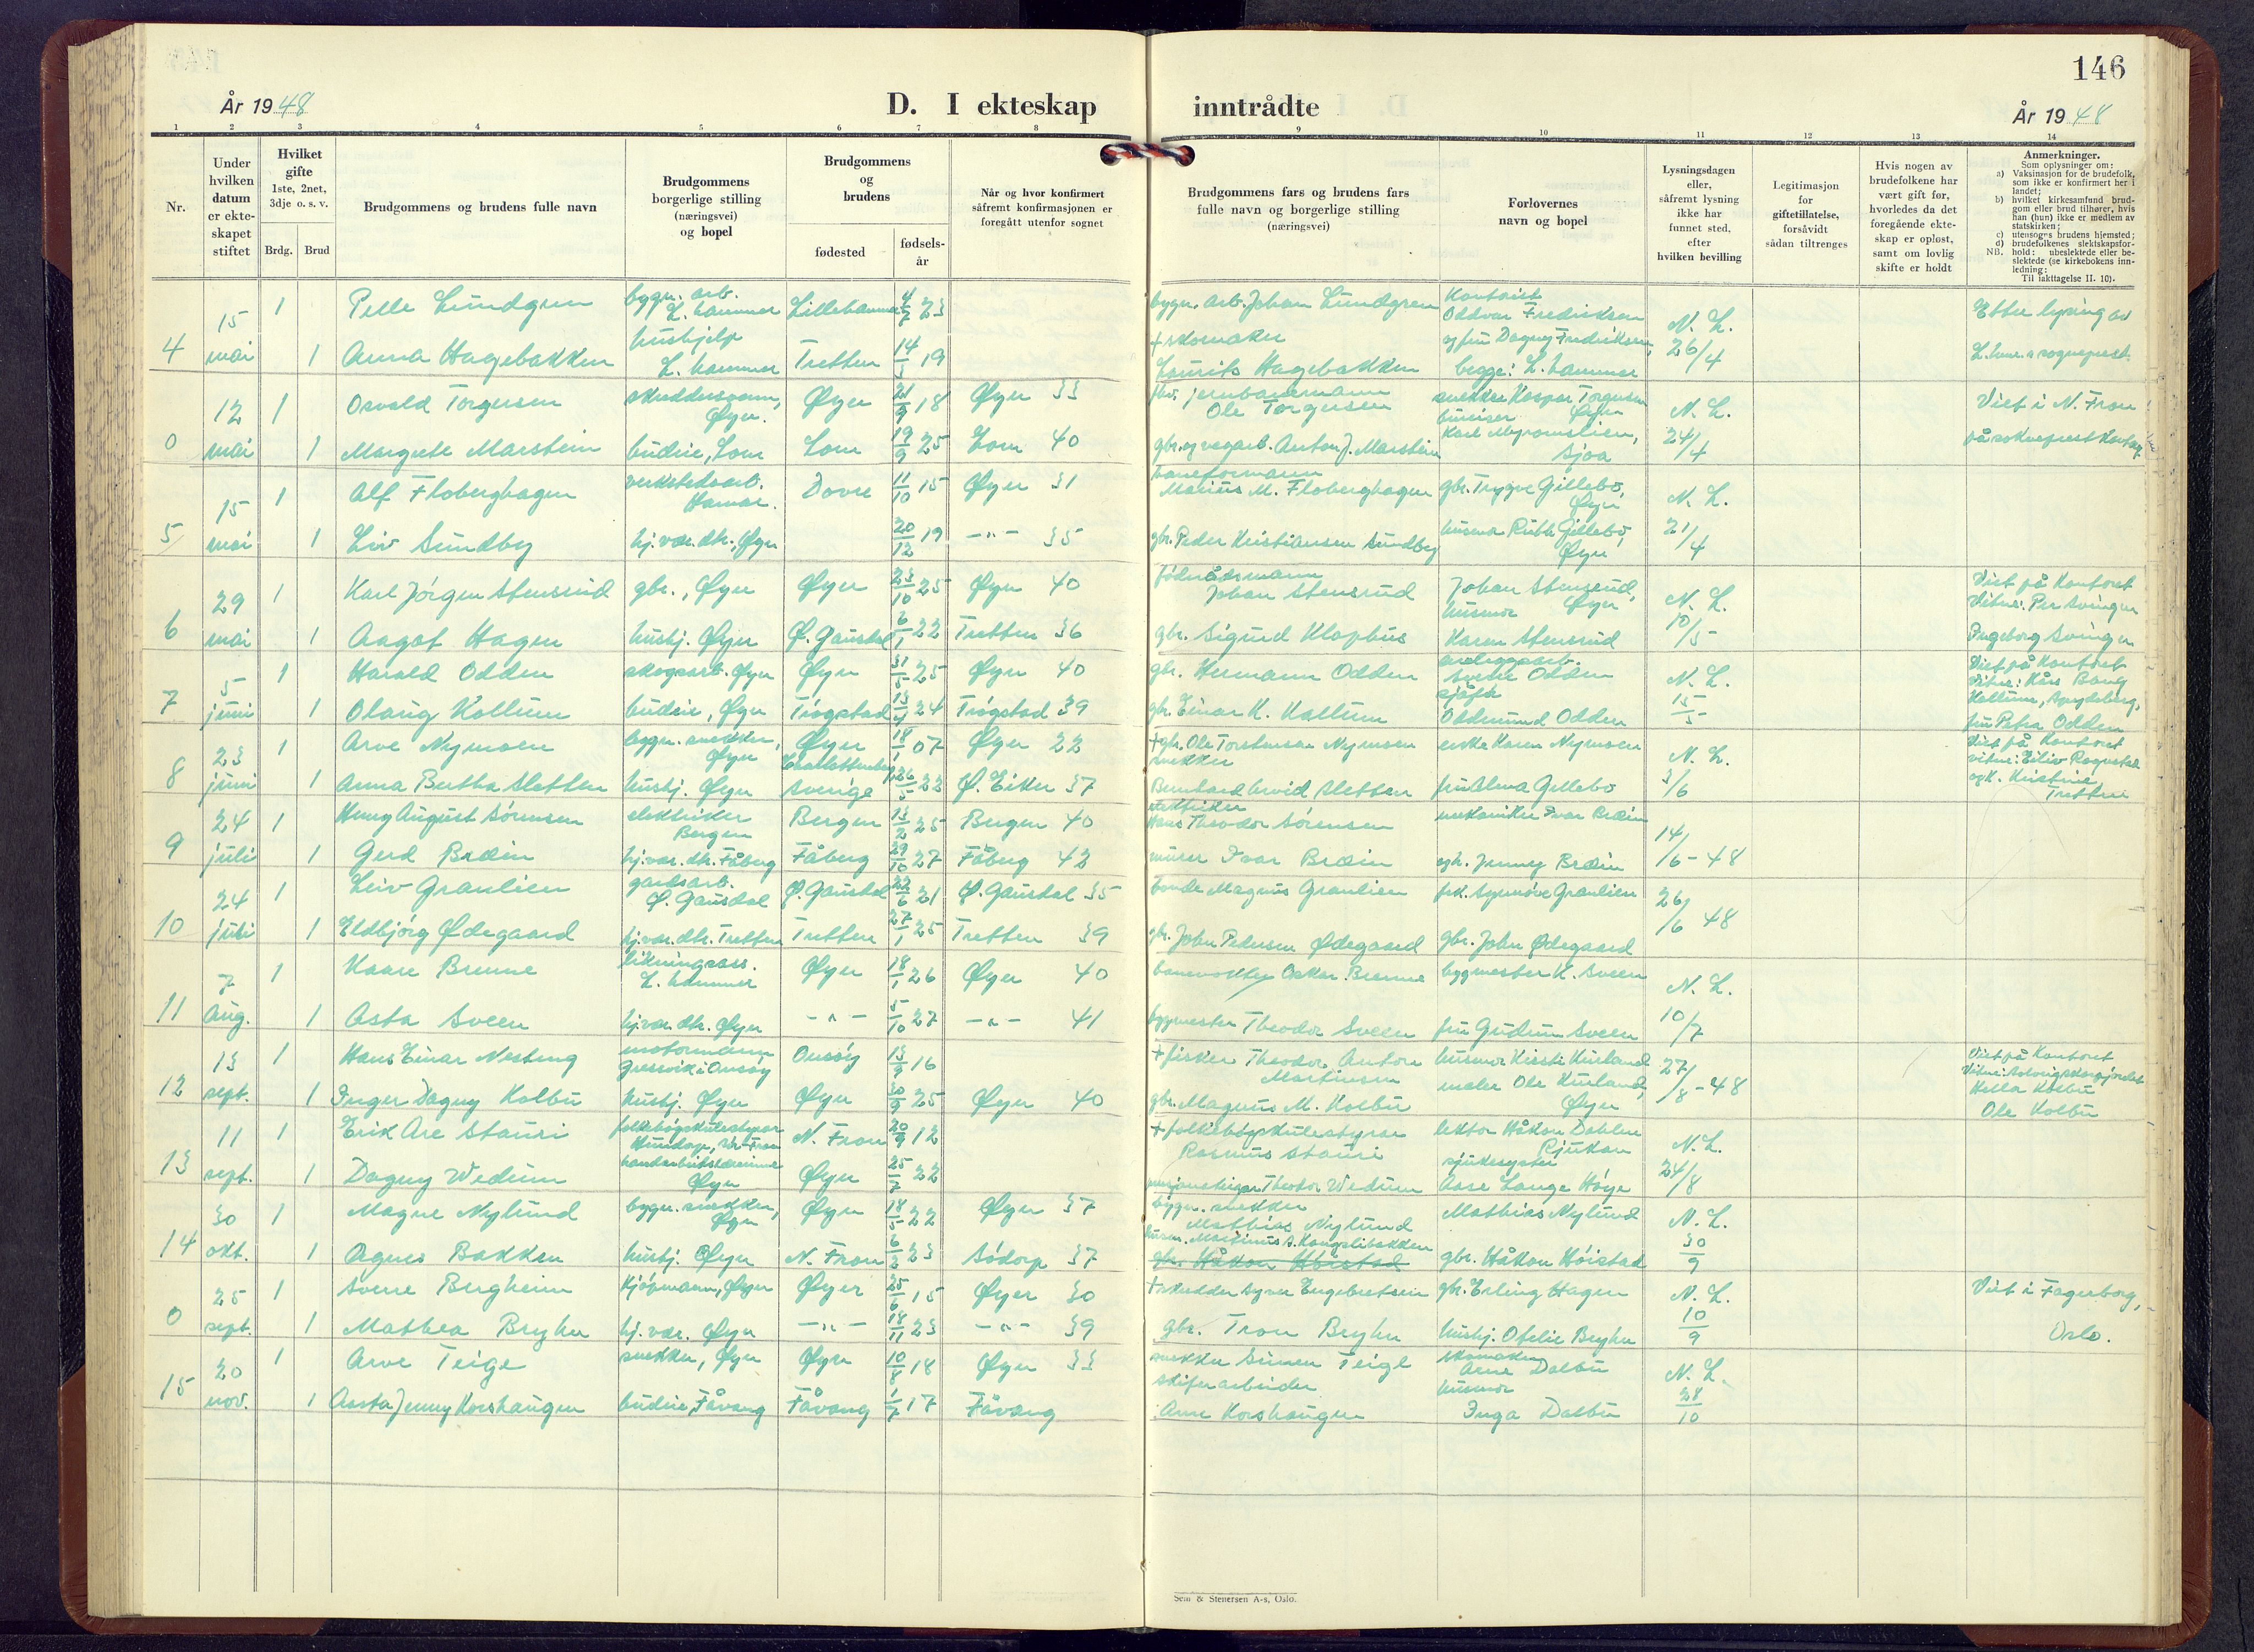 146
År 1948
D. I ekteskap inntrådte
År 1948
1 2 3 4 5 6 7 8 9 10 11 12 13 14
Nr.
Under
hvilken
datum
er ekte-
skapet
stiftet
Hvilket
gifte
1ste, 2net,
3dje o. s. v.
Brdg. Brud
Brudgommens og brudens fulle navn
Brudgommens
borgerlige stilling
(næringsvei)
og bopel
Brudgommens
og
brudens
fødested
fødsels-
år
Når og hvor konfirmert
såfremt konfirmasjonen er
foregått utenfor sognet
Brudgommens fars og brudens fars
fulle navn og borgerlige stilling
(næringsvei)
Forlovernes
navn og bopel
Lysningsdagen
eller,
såfremt lysning
ikke har
funnet sted,
efter
hvilken bevilling
Legitimasjon
for
giftetillatelse,
forsåvidt
sådan tiltrenges
Hvis nogen av
brudefolkene har
vært gift før,
hvorledes da det
foregående ekte-
skap er opløst,
samt om lovlig
skifte er holdt
Anmerkninger.
Som oplysninger om:
a) Vaksinasjon for de brudefolk,
som ikke er konfirmert her i
landet;
b) hvilket kirkesamfund brud-
gom eller brud tilhører, hvis
han (hun) ikke er medlem av
statskirken;
c) utensogns brudens hjemsted;
d) brudefolkenes slektskapsfor-
hold: ubeslektede eller be-
slektede (se kirkebokens inn-
ledning:
NB. Til iakttagelse II. 10).
4 15 mai
1 Pelle Lundgren bygn. arb. L.hammer Lillehammer 4/7 23 bygn. arb. Johan Lundgren Kontorist Oddvar Fredriksen N. L. 26/4 Etter lysing av
1 Anna Hagebakken hushjelp L.hammer Tretten 14/5 19 + skomaker Laurits Hagebakken og fru Dagny Fredriksen, begge: L.hammer L.hmr.s sogneprest.
0 12 mai
1 Osvald Torgersen skreddersvenn, Øyer. Øyer 21/9 18 Øyer 33 fhv. jernbanemann Ole Torgersen snekker Kaspar Torgersen Øyer N. L. 24/4 Viet i N. Fron
1 Margrete Marstein budeie, Lom Lom 19/9 25 Lom 40 gbr. og vegarb. Anton J. Marstein bureiser Karl Myromslien, Sjoa på sokneprest Kontor
5 15 mai
1 Alf Floberghagen verkstedsarb. Hamar. Dovre 11/10 15 Øyer 31 baneformann Marius M. Floberghagen gbr. Trygve Gillebo, Øyer N. L. 21/4
1 Liv Sundby hj. vær. dtr. Øyer 20/12 19 -"- 35 gbr. Peder Kristiansen Sundby husmor Ruth Gillebo, Øyer
6 29 mai
1 Karl Jörgen Stensrud gbr., Øyer Øyer 23/10 25 Øyer 40 föderådsmann Johan Stensrud Johan Stensrud, Øyer N. L. 10/5 Viet på Kontoret Vitner: Per Svingen
1 Aagot Hagen hushj. Øyer Ø. Gausdal 6/1 22 Tretten 36 gbr. Sigurd Klophus husmor Karen Stensrud Ingeborg Svingen
7 5 juni
1 Harald Odden skogsarb. Øyer Øyer 31/5 25 Øyer 40 gbr. Hermann Odden anleggsarb. Sverre Odden N. L. 15/5 Viet på Kontoret
1 Olaug Kollum budeie, Øyer Trögstad 24 Trögstad 39 gbr. Einar K. Kollum sjåför Oddmund Odden fru Petra Odden
8 23 juni
1 Arve Nymoen bygn. snekker, Øyer Øyer 18/1 07 Øyer 22 + gbr. Ole Torstensen Nymoen enke Karen Nymoen N. L. 3/6 Viet på Kontoret
1 Anna Bertha Sletten hushj. Øyer Charlottenberg, Sverige 26/5 23 Ø. Eiker 37 snekker Bernhard Arvid Sletten fru Alma Gillebo vitne: Eiliv Rognstad og K. Kristine, Tretten
9 24 juli
1 Henry August Sörensen elektriker Bergen Bergen 13/2 25 Bergen 40 elektriker Hans Theodor Sörensen mekaniker Ivar Bræin 14/6-48
1 Gerd Bræin hj. vær. dtr. Fåberg Fåberg 29/10 27 Fåberg 42 murer Ivar Bræin Jenny Bræin
10 24 juli
1 Leiv Granlien gardsarb. Ø. Gausdal Ø. Gausdal 22/6 21 Ø. Gausdal 35 bonde Magnus Granlien frk. Synnöve Granlien 26/6 48
1 Eldbjörg Ødegaard hj. vær. dtr. Tretten Tretten 27/1 25 Tretten 39 gbr. John Pedersen Ødegaard gbr. John Ødegaard
11 7 Aug.
1 Kaare Brenne likningsass. L.hammer Øyer 18/1 26 Øyer 40 banevokter Oskar Brenne byggmester K. Sveen N. L. 10/7
1 Asta Sveen hj. vær. dtr. Øyer -"- 5/10 27 -"- 41 byggmester Theodor Sveen fru Gudrun Sveen
12 13 sept.
1 Hans Einar Nestung motormann Gressvik i Onsöy Onsöy 13/9 16 + fisker Theodor Anton Martinsen husmor Kirsti Hurland 27/8-48 Viet på Kontoret
1 Inger Dagny Kolbu hushj. Øyer Øyer 30/9 25 Øyer 40 gbr. Magnus M. Kolbu maler Ole Hurland, Øyer Hella Kolbu Ole Kolbu
13 11 sept.
1 Erik Are Stauri N. Fron 20/9 12 + folkehögskulestyrar Rasmus Stauri lektor Håkon Dahlen Rjukan N. L. 24/8
1 Dagny Wedum handarbeidslærerinne Øyer Øyer 25/7 22 Theodor Wedum sjukesyster Aase Lange Höye
14 30 okt.
1 Magne Nylund bygn. snekker, Øyer Øyer 18/5 22 Øyer 37 bygn. snekker Mathias Nylund Mathias Nylund N. L. 30/9
1 Agnes Bakken hushj. Øyer N. Fron 6/2 23 Södorp 37 Martinus A. Kongslibakken gbr. Håkon Höistad gbr. Håkon Höistad
0 25 sept.
1 Sverre Bergheim kjöpmann, Øyer Øyer 25/6 15 Øyer 30 + skredder Syver Engebretsen gbr. Erling Hagen N. L. 10/9 Viet i Fagerborg,
1 Mathea Bryhn hj. vær. Øyer -"- 18/11 23 -"- 39 gbr. Tron Bryhn hushj. Ofelie Bryhn Oslo.
15 20 nov.
1 Arve Teige snekker, Øyer Øyer 10/8 18 Øyer 33 snekker Simen Teige skomaker Arne Dalbu N. L. 28/10
1 Aasta Jenny Korshaugen budeie, Fåvang Fåvang 1/7 17 Fåvang skiferarbeider Arne Korshaugen husmor Inga Dalbu
Sem & Stenersen A-s, Oslo.